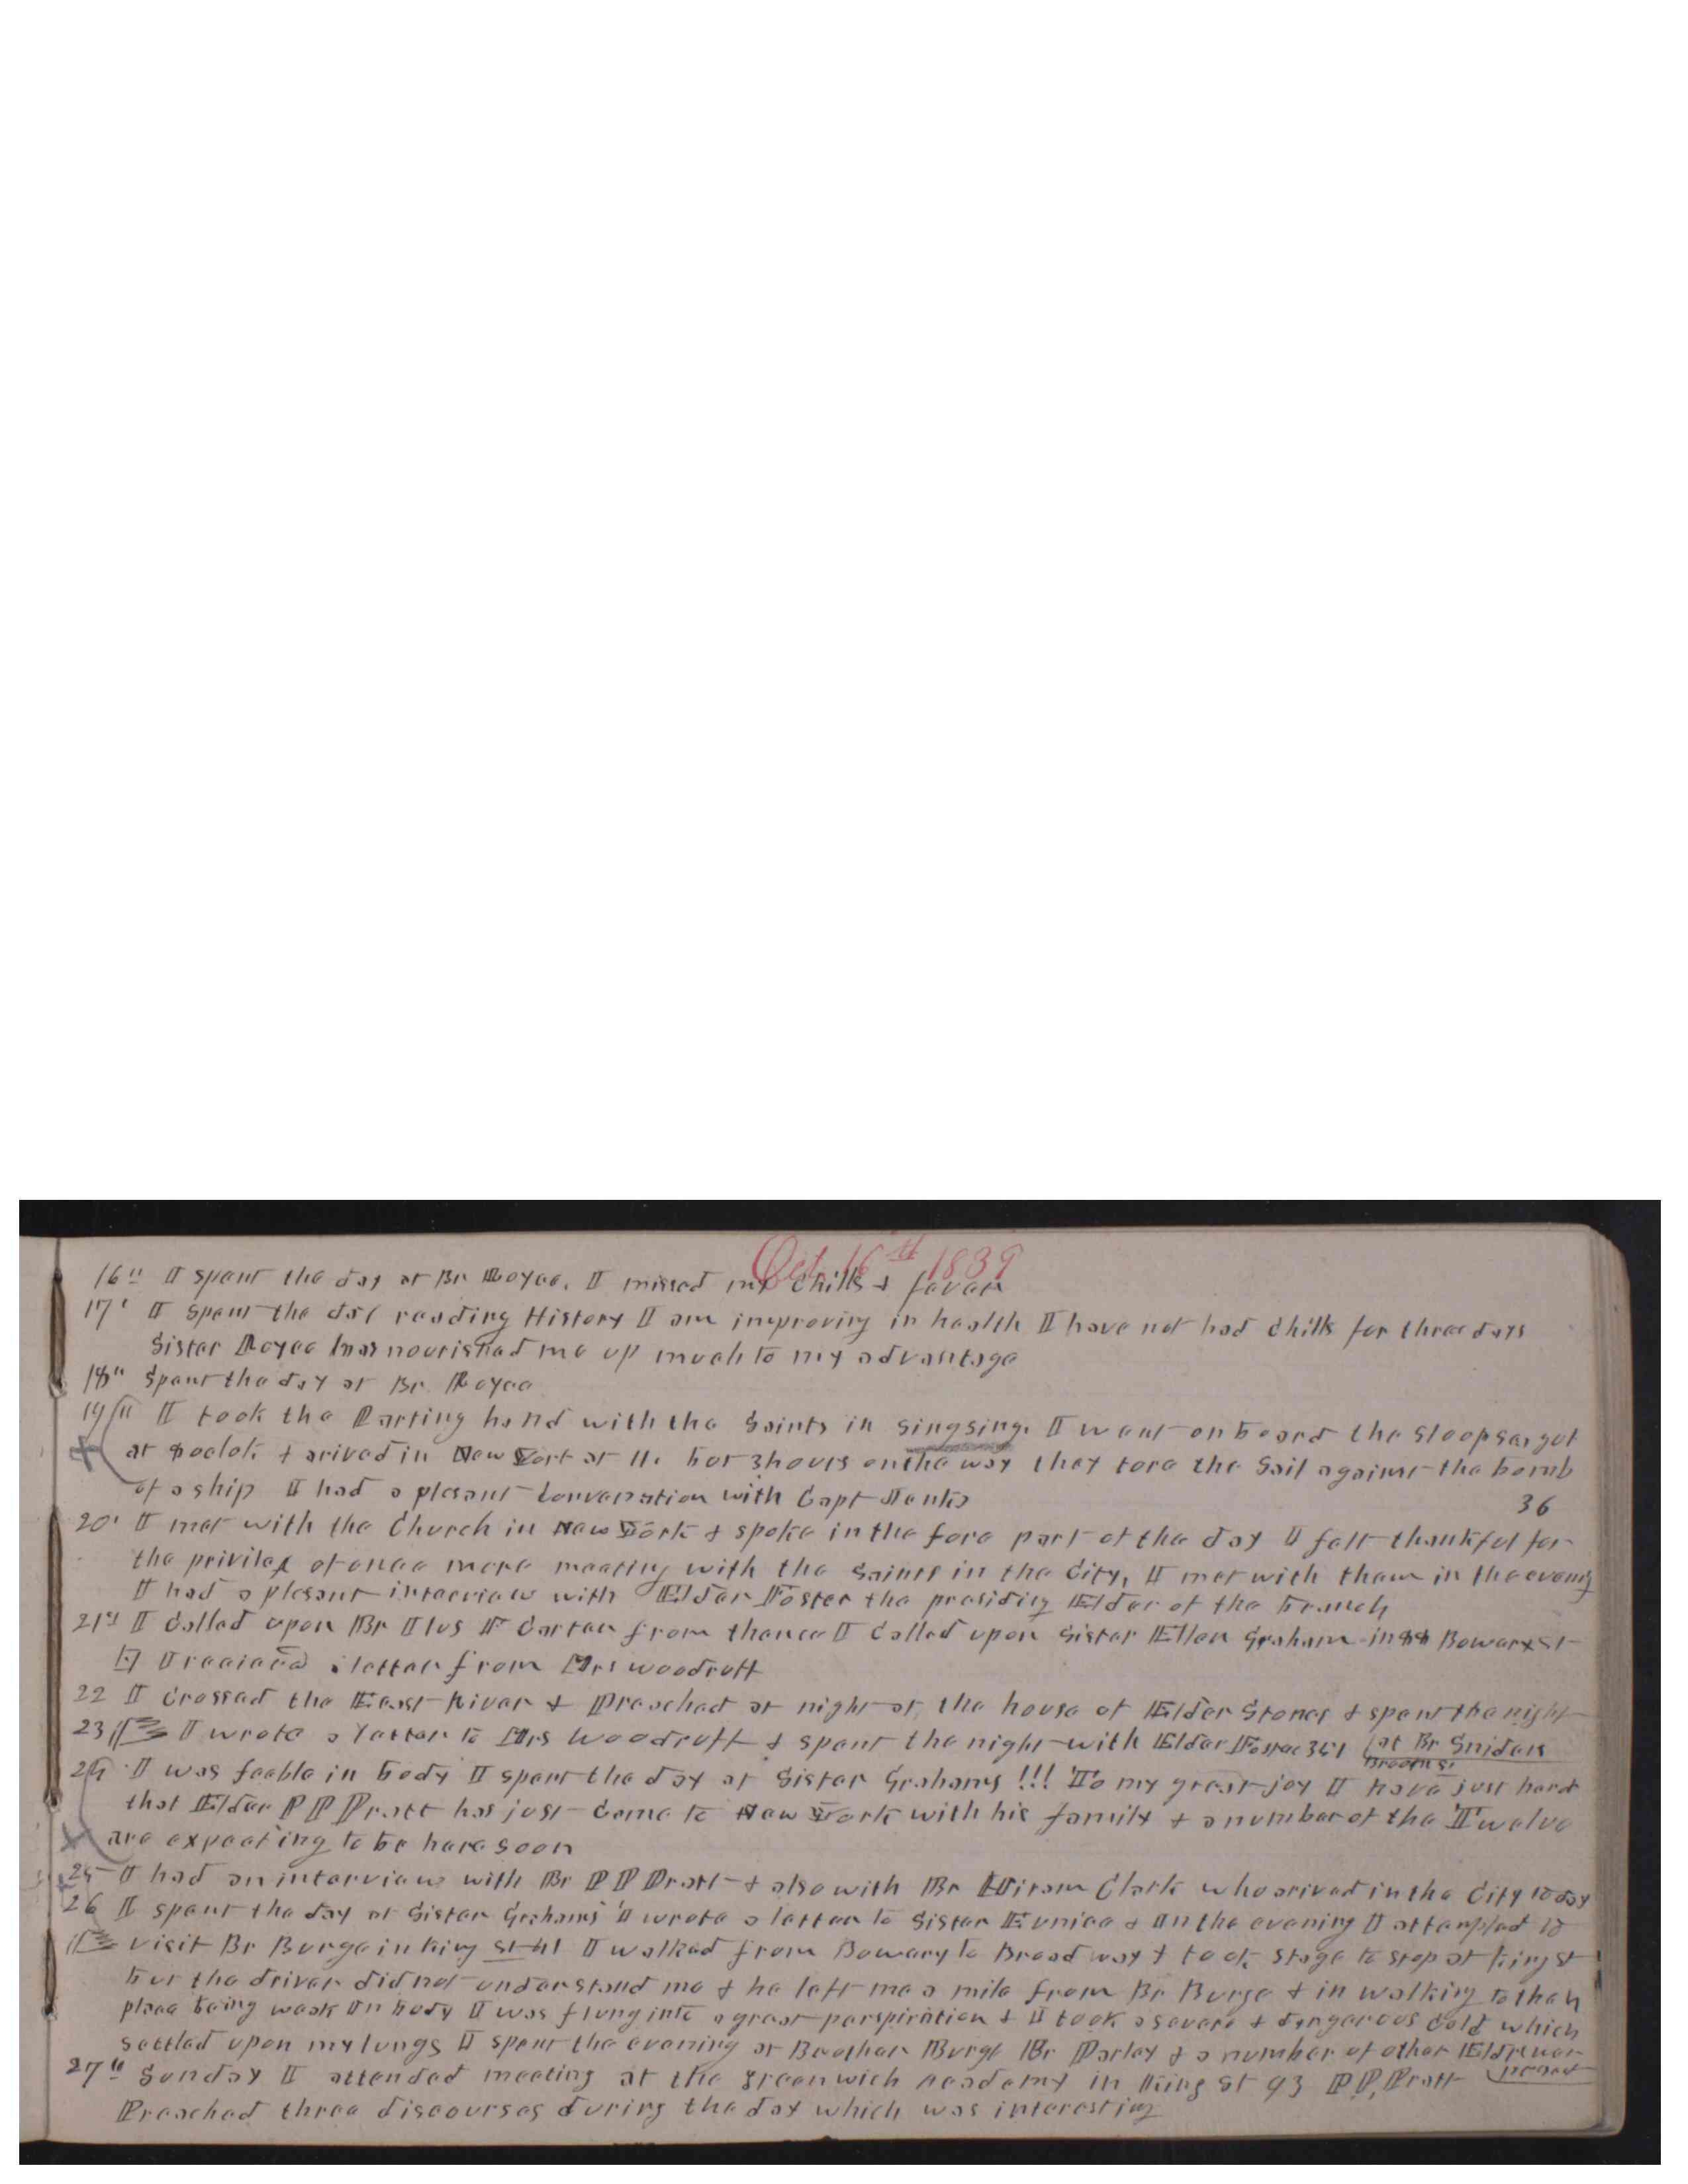 Oct. 16th 1839
16th I spent the day at Br Royce. I missed my Chills & fever
17th I spent the day reading History I am improving in health I have not had Chills for three days
Sister Royce has nourished me up much to my advantage
18th Spent the day at Br. Royce
19th I took the Parting hand with the Saints in Singsing. I went on board the Sloop sargut
at 8 oclok & arived in New York at 11. but 3 hours on the way they tore the Sail against the bomb
of a ship I had a plesant Conversation with Capt Jenks
36
20th I met with the Church in New York & spoke in the fore part of the day I felt thankful for
the privileg of once more meeting with the Saints in the City, I met with them in the evening
I had a plesant interview with Elder Foster the presiding Elder of the Branch
21st I Called upon Br Ilus F Carter from thence I Called upon Sister Ellen Graham in 88 Bowery St
I received a letter from Mrs Woodruff
22 I Crossed the East River & Preached at night at the house of Elder Stones & spent the night
at Br Sniders
23 I wrote a letter to Mrs Woodruff & spent the night with Elder Foster 351
Broom St
24 I was feeble in body I spent the day at Sister Grahams !!! To my great joy I have just hard
that Elder P P Pratt has just Come to New York with his family & a number of the Twelve
are expecting to be here soon
25 I had an interview with Br P P Pratt & also with Br Hiram Clark who arived in the City to day
26 I spent the day at Sister Grahams I wrote a letter to Sister Eunice & In the evening I attempted to
visit Br Burge in King St 41 I walked from Bowery to Broad way & took stage to stop at King St
but the driver did not understand me & he left me a mile from Br Burge & in walking to then
place being weak In body I was flung into a great perspiration & I took a severe & dangerous Cold which
settled upon my lungs I spent the evening at Brother Burge Br Parley & a number of other Elders wer
present
27th Sunday I attended meeting at the greenwich academy in King St 93 P P, Pratt
Preached three discourses during the day which was interesting